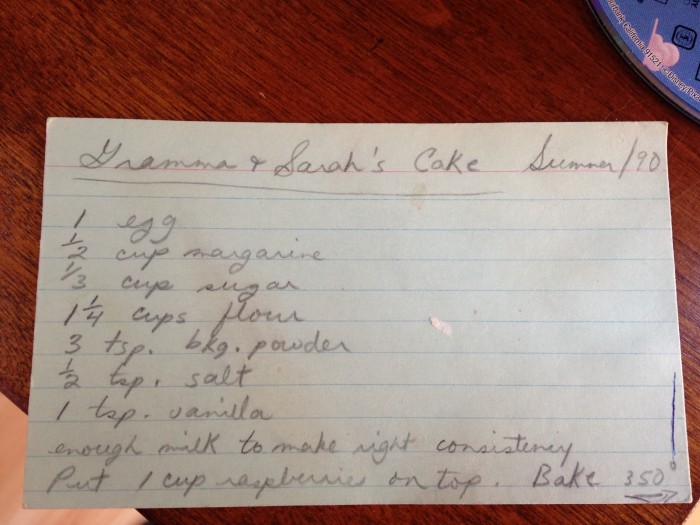 Gramma & Sarah's Cake Summer/90
1 egg
1/2 cup margarine
1/3 cup sugar
1 1/4 cups flour
3 tsp. bkg. powder
1/2 tsp. salt
1 tsp. vanilla
enough milk to make right consistency
Put 1 cup raspberries on top. Bake 350°
California 91521 © Disney/Pixa